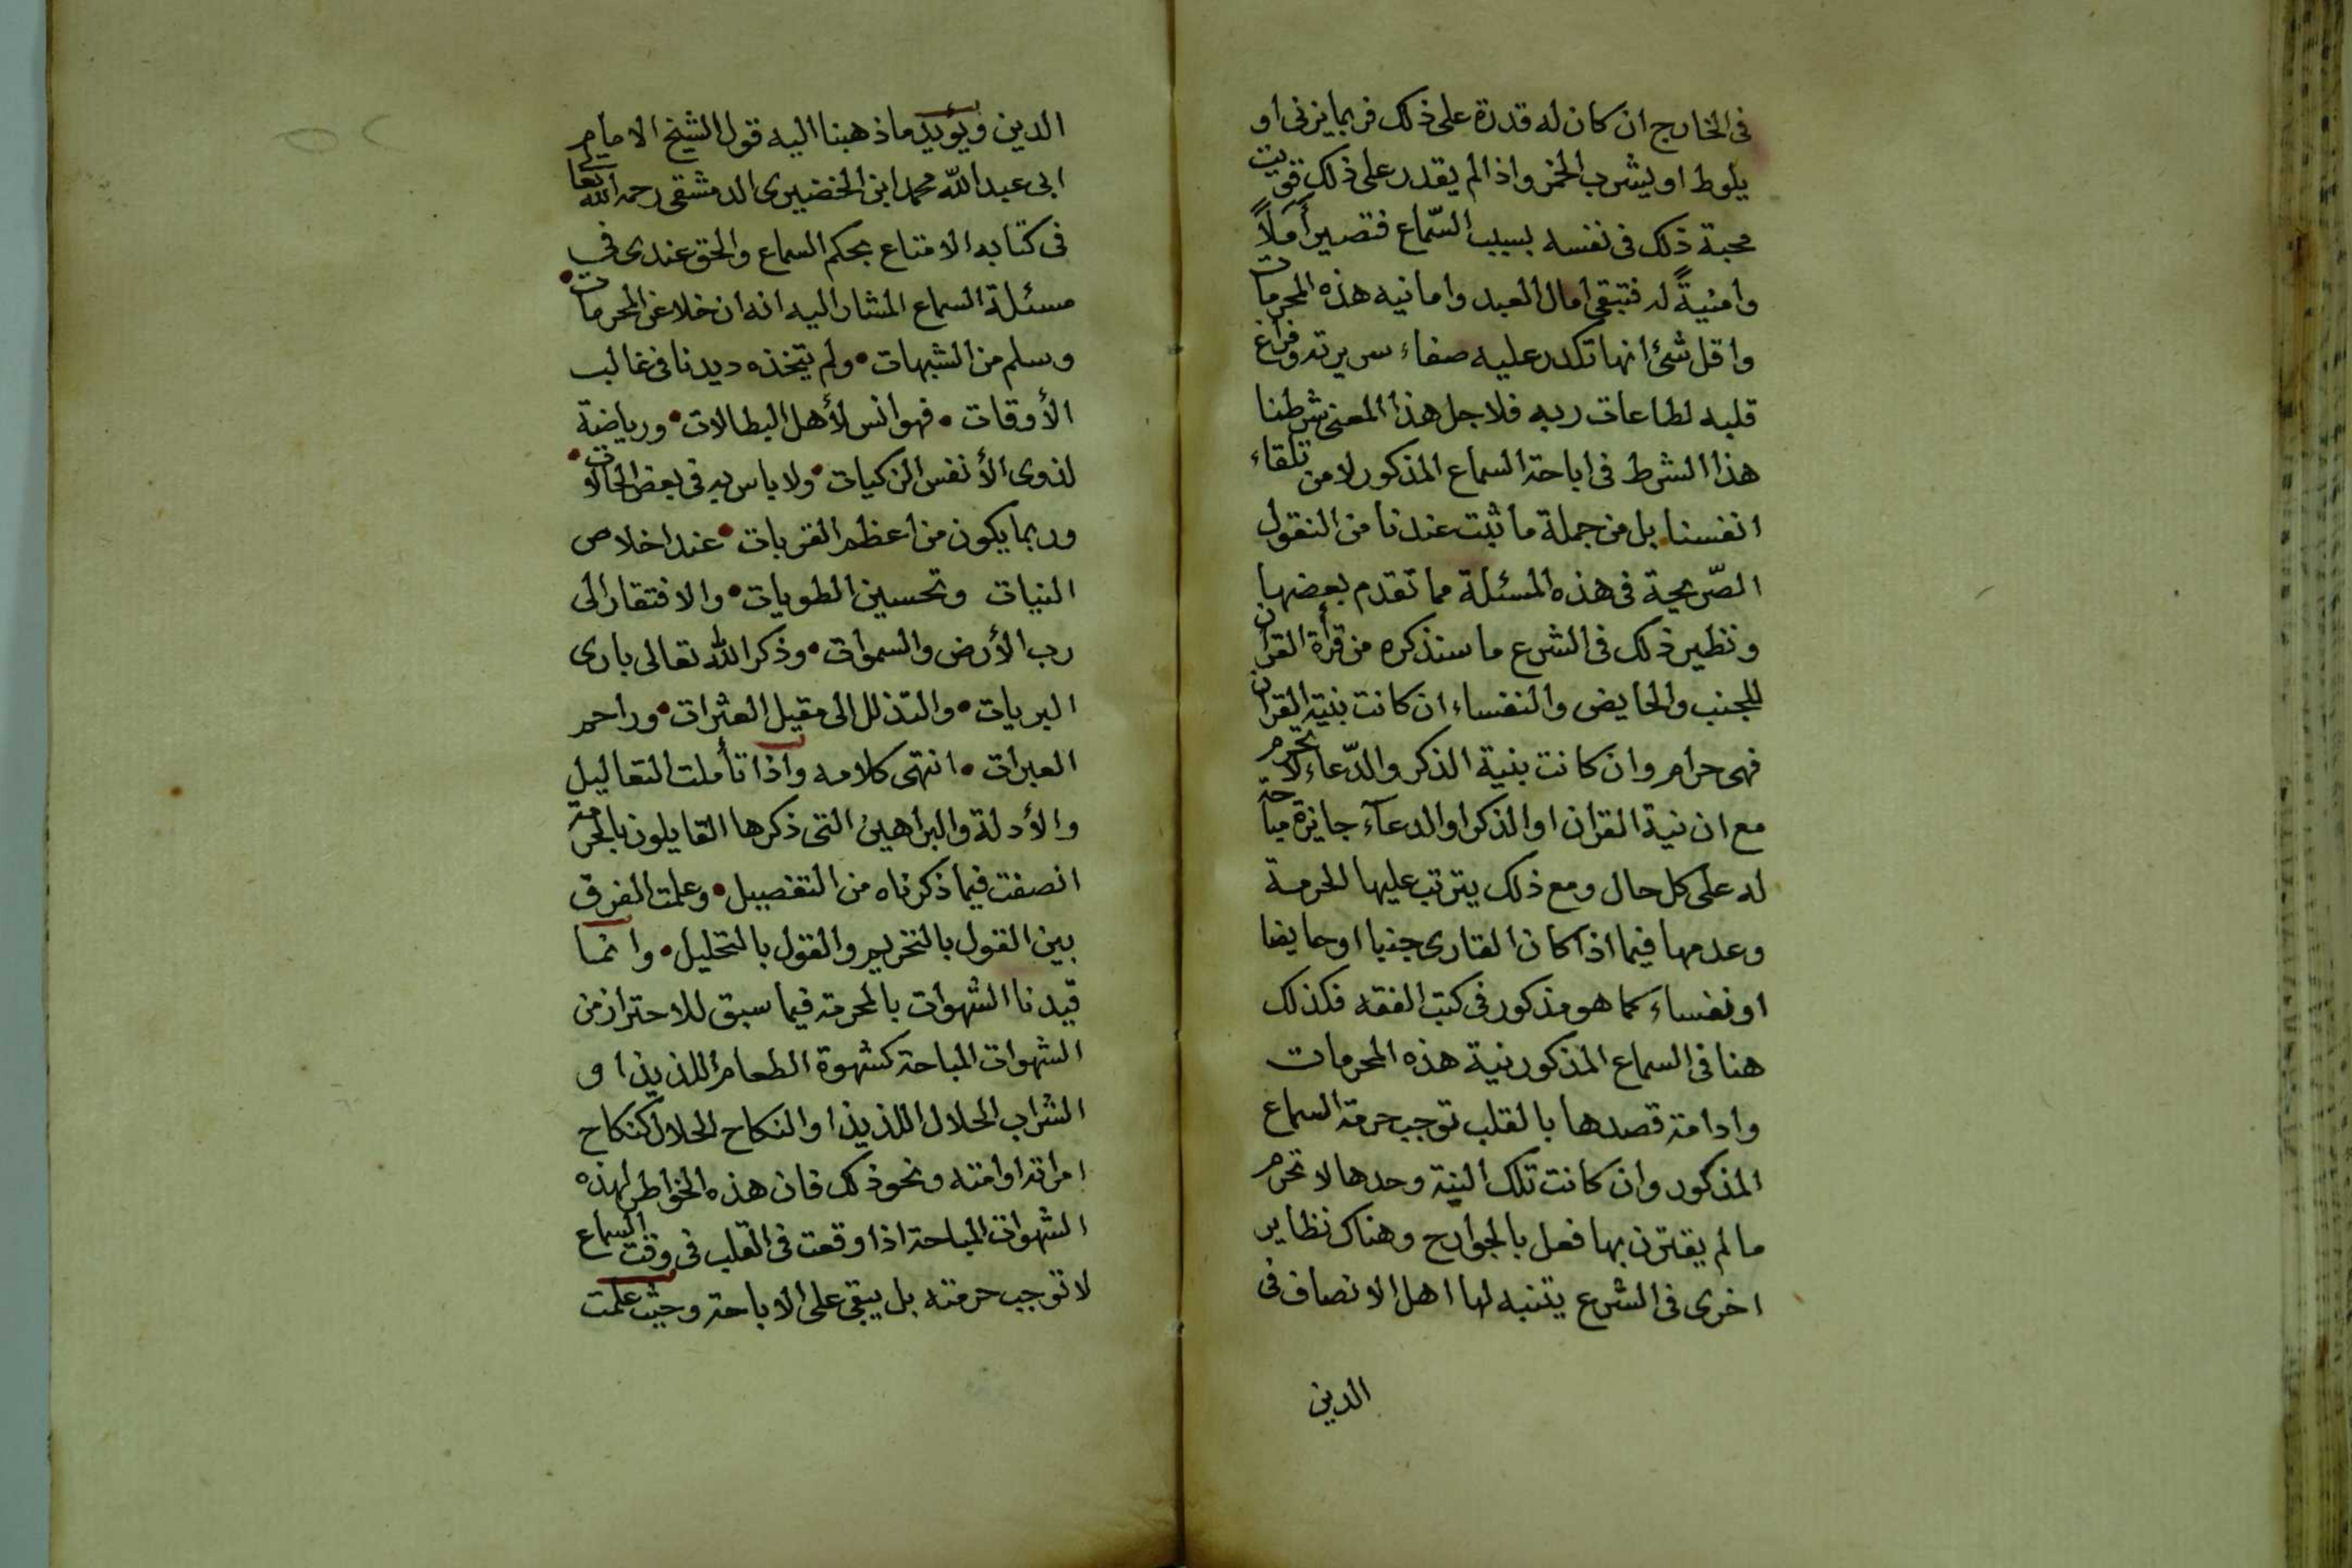 فى الخارج ان كان له قدرة على ذلك فربما يزنى او
يلوط او يشرب الخمر واذا لم يقدر على ذلك قويت
محبة ذلك فى نفسه بسبب السّماع فتصير أملاً
وامنيةً له فتبقى امال العبد وامانيه هذه المحرمات
واقل شئ انها تكدر عليه صفاء سريرته وفراغ
قلبه لطاعات ربه فلاجل هذا المعنى شرطنا
هذا الشرط فى اباحة السماع المذكور لا من تلقاء
انفسنا بل من جملة ما ثبت عندنا من النقول
الصّريحية فى هذه المسئلة مما تقدم بعضها
ونظير ذلك فى الشرع ما سنذكره من قرأة القران
للجنب والحايض والنفساء ان كانت بنية القران
فهى حرام وان كانت بنية الذكر والدّعاء لا تحرم
مع ان نية القران او الذكر او الدعآء جايزة مباحة
له على كل حال ومع ذلك يترتب عليها الحرمة
وعدمها فيما اذا كان القارى جنبا او حايضا
او نفساء كما هو مذكور فى كتب الفقه فكذلك
هنا فى السماع المذكور نية هذه المحرمات
وادامة قصدها بالقلب توجب حرمة السماع
المذكور وان كانت تلك النية وحدها لا تحرم
ما لم يقترن بها فعل بالجوارح وهناك نظاير
اخرى فى الشرع يتنبه لها اهل الانصاف فى
الدين
الدين ويؤيد ما ذهبنا اليه قول الشيخ الامام
ابى عبد اللّه محمد ابن الخضيرى الدمشقى رحمه الله تعالى
فى كتابه الامتاع بحكم السماع والحق عندى فى
مسئلة السماع المشار اليه انه ان خلا عن المحرمات •
وسلم من الشبهات • ولم يتخذه ديدنا فى غالب
الأوقات • فهو انس لأهل البطالات • ورياضة
لذوى الأنفس الزكيات • ولا باس به فى بعض الحالات •
وربما يكون من اعظم القربات • عند اخلاص
النيات وتحسين الطويات • والافتقار الى
رب الأرض والسموات • وذكر الله تعالى بارى
البريات • والتذلل الى مقيل العثرات • وراحم
العبرات • انتهى كلامه واذا تأملت التعاليل
والأدلة والبراهين التى ذكرها القايلون بالحرمة
انصفت فيما ذكرناه من التفصيل • وعلمت الفرق
بين القول بالتحريم والقول بالتحليل • وانما
قيدنا الشهوات بالمحرمة فيما سبق للاحتراز من
الشهوات المباحة كشهوة الطعام اللذيذ او
الشراب الحلال اللذيذ او النكاح الحلال كنكاح
امراته او امته ونحو ذلك فان هذه الخواطر لهذه
الشهوات المباحة اذا وقعت فى القلب فى وقت السماع
لا توجب حرمته بل يبقى على الاباحة وحيث علمت